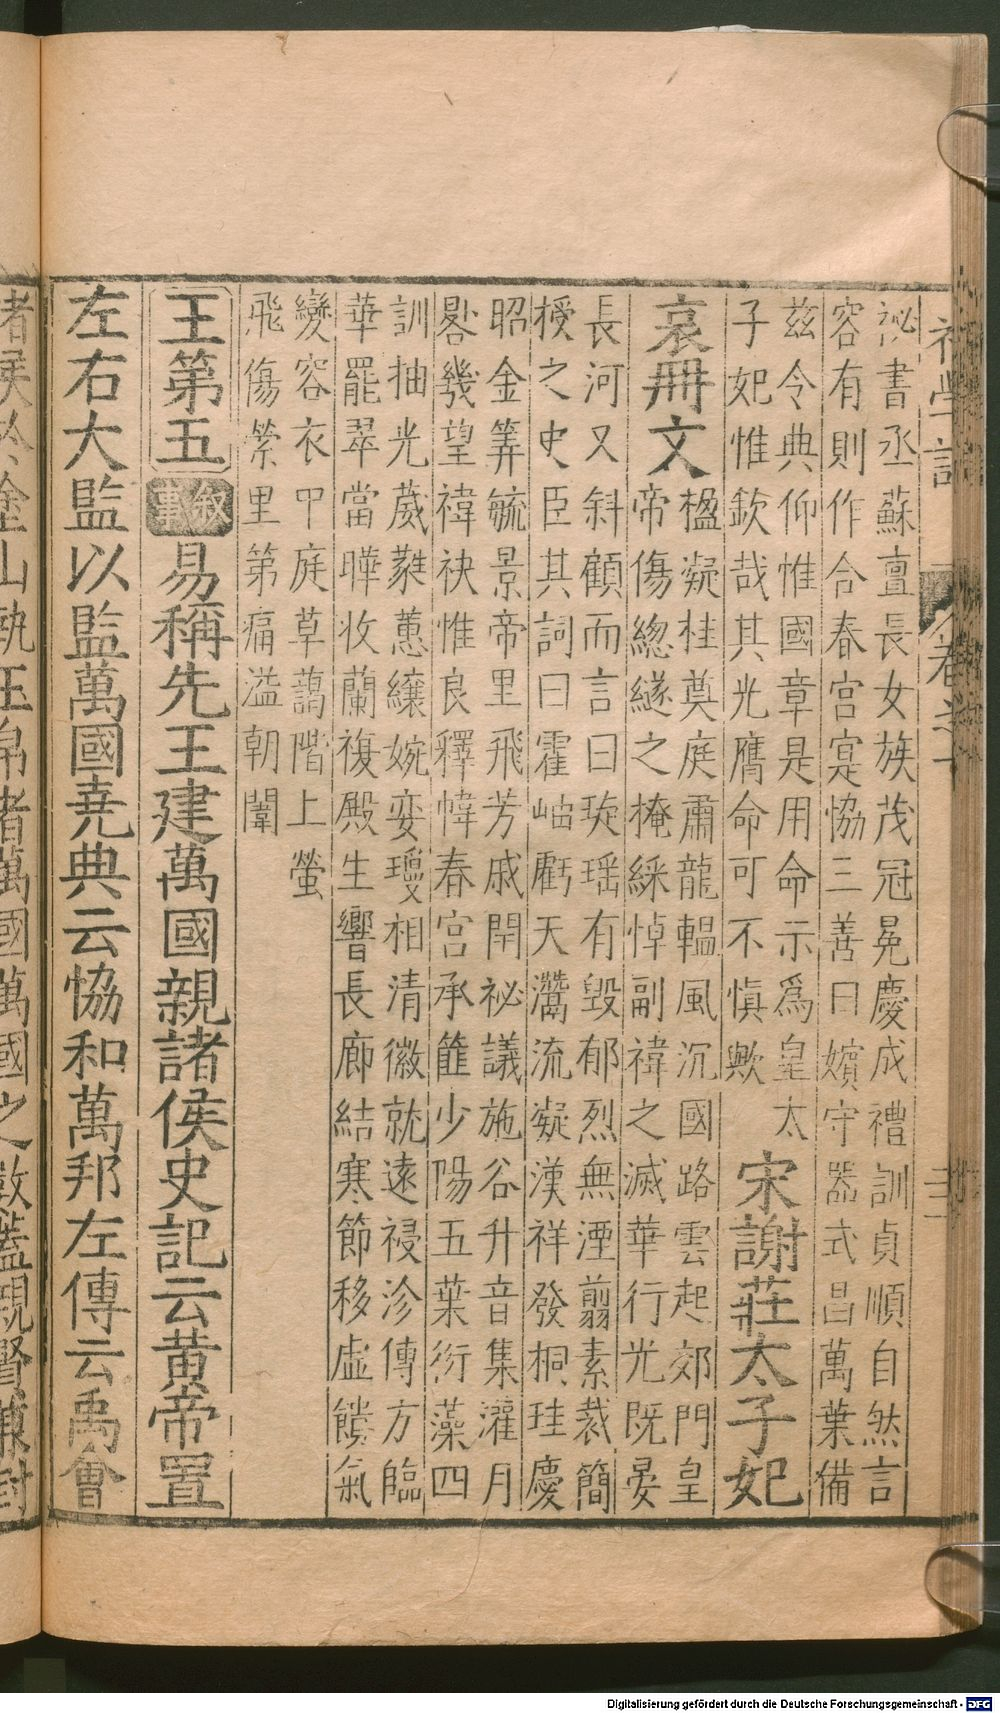 祕書丞蘇亶長女族茂冠冕慶成禮訓貞順自然言
容有則作合春宮寔協三善曰嬪守器式昌萬葉備
茲令典仰惟國章是用命示爲皇太
子妃惟欽哉其光膺命可不慎歟
宋謝莊太子妃
哀冊文
楹凝桂奠庭肅龍轀風沉國路雲起郊門皇
帝傷緫繸之掩綵悼副褘之滅華行光既晏
長河又斜顧而言曰琁瑶有毀郁烈無湮翦素裁簡
授之史臣其詞曰霍岫虧天灊流凝漢祥發桐珪慶
昭金筭毓景帝里飛芳戚閈祕議施谷升音集灌月
晷幾望褘袂惟良釋幃春宮承雎少陽五葉衍藻四
訓抽光葳蕤蕙纕婉孌瓊相清徽就遠祲沴傳方臨
華罷翠當曄收蘭複殿生響長廊結寒節移虛饋氣
變容衣甲庭草藹階上螢
飛傷縈里第痛溢朝闈
王第五
敘事
易稱先王建萬國親諸侯史記云黄帝置
左右大監以監萬國堯典云協和萬邦左傳云禹會
諸侯於塗山執玉帛者萬國萬國之數
初學記
卷之十
Digitalisierung gefördert durch die Deutsche Forschungsgemeinschaft - DFG